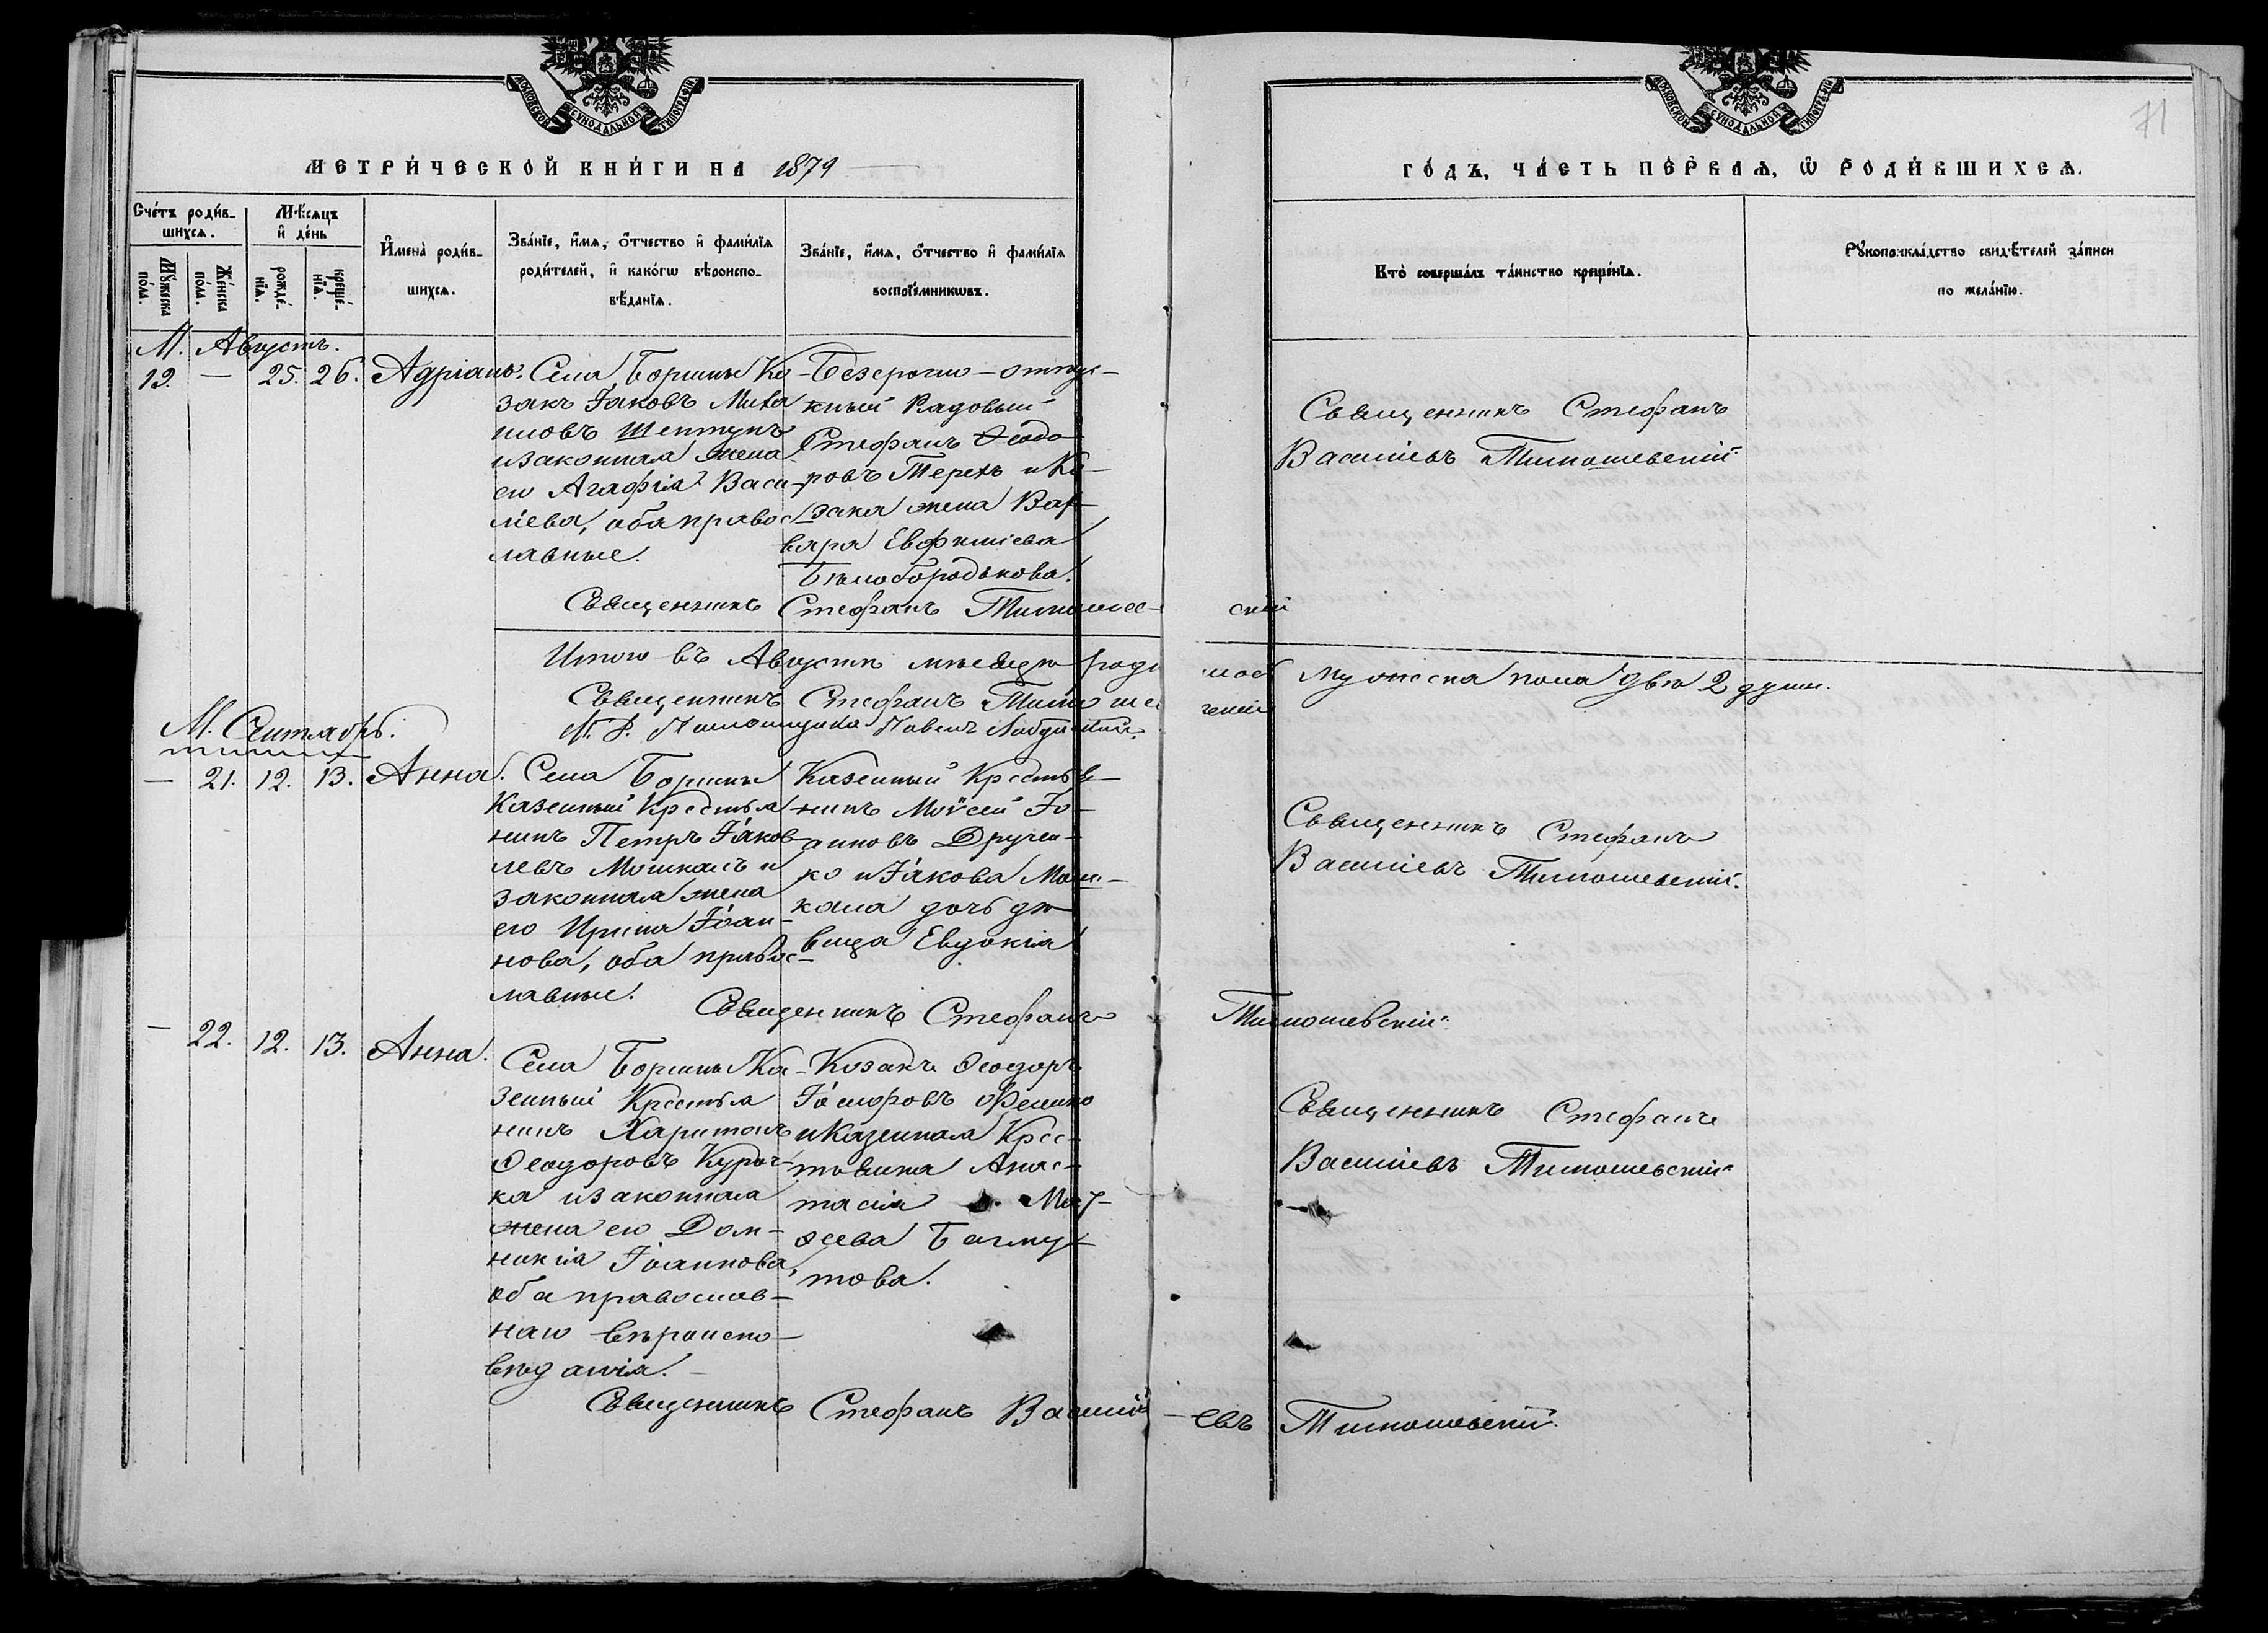 МОСКОВСКОЙ СѴНОДАЛЬНОЙ ТИПОГРАФІИ
МОСКОВСКОЙ СѴНОДАЛЬНОЙ ТИПОГРАФІИ
71
МЕТРИ́ЧЕСКОЙ КНИ́ГИ НА 1879
ГО́ДЪ, ЧА́СТЬ ПЕ́РВАѦ, Ѡ РОДИ́ВШИХСѦ.
Сче́тъ роди́в-
шихсѧ.
Мѣ́сѧцъ
и де́нь
Мꙋ́жеска
по́ла.
Же́нска
по́ла.
рожде́-
нїѧ.
креще́-
нїѧ.
Имена̀ роди́в-
шихсѧ.
Зва́нїе, и́мѧ, о́тчество и фами́лїѧ
роди́телей, и како́гѡ вѣроиспо-
вѣ́данїѧ.
Зва́нїе, и́мѧ, о́тчество и фами́лїѧ
воспрїе́мникѡвъ.
Кто̀ соверша́лъ та́инство креще́нїѧ.
Рꙋкоприкла́дство свидѣ́телей за́писи
по жела́нїю.
М. Августъ.
19. — 25. 26. Адріанъ.
Села Борщны Ко-
закъ Іаковъ Миха
иловъ Шептунъ
и законная жена
его Агафія Васи-
ліева, оба правос
лавные.
Безсрочно-отпус-
кный Рядовый
Стефанъ Ѳеодо-
ровъ Терехъ и Ко-
зака жена Вар-
вара Евфиміева
Бѣлобородькова.
Священникъ Стефанъ
Василіевъ Тимошевскій.
Священникъ Стефанъ Тимошев-скій
Итого въ Августѣ мѣсяцѣ родилось мужеска пола двѣ 2 души.
Священникъ Стефанъ Тимошевскій
Павелъ
М. Сентябрь.
— 21. 12. 13. Анна.
Села Борщны
Казенный Крестья
нинъ Петръ Іаков
левъ Мошкалъ и
законная жена
его Ирина Іоан-
нова, оба правос-
лавные.
Казенный Крестья-
нинъ Моѵсей Іо-
анновъ Дручен-
ко и Іакова Мош-
кала дочь дѣ-
вица Евдокія
Священникъ Стефанъ
Василіевъ Тимошевскій.
Священникъ Стефанъ Тимошевскій.
— 22. 12. 13. Анна.
Села Борщны Ка-
зенный Крестья
нинъ Харитонъ
Ѳеодоровъ Куроч-
ка и законная
жена его Дом-
никія Іоаннова,
оба православ-
наго вѣроиспо-
вѣданія.
Козакъ Ѳеодоръ
и Казенная Крес-
тьянка Анас-
тасія Мат-
ѳеева Бахму-
това.
Священникъ Стефанъ
Василіевъ Тимошевскій
Священникъ Стефанъ Василі-евъ Тимошевскій.